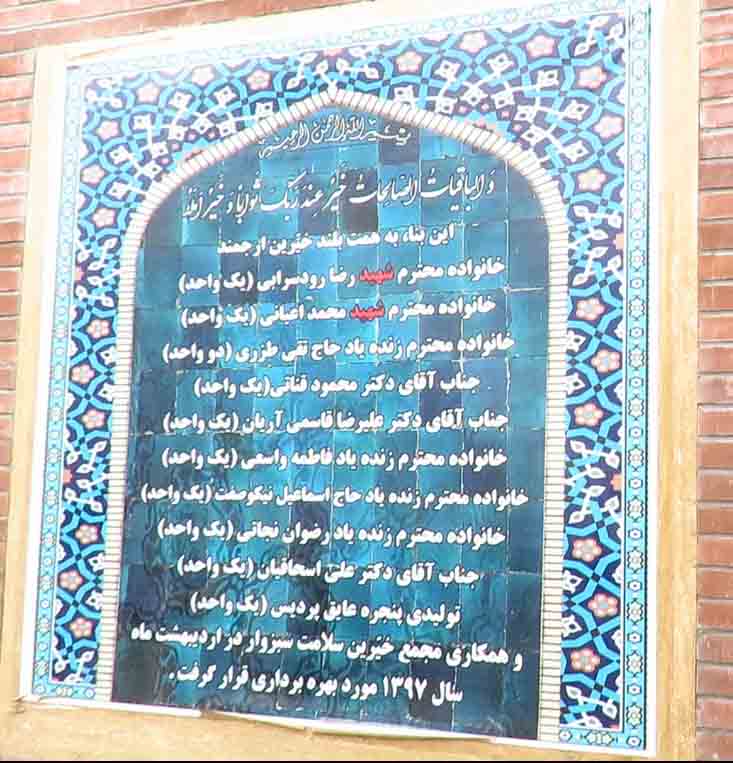 بسم الله الرحمن الرحیم
والباقیات الصالحات خیر عند ربک ثوابا و خیر املا
این بناء به همت بلند خیّرین ارجمند
خانواده محترم شهید رضا رودسرابی (یک واحد)
خانواده محترم شهید محمد اعیانی (یک واحد)
خانواده محترم زنده یاد حاج تقی طزری (دو واحد)
جناب آقای دکتر محمود قناتی(یک واحد)
جناب آقای دکتر علیرضا قاسمی آریان (یک واحد)
خانواده محترم زنده یاد فاطمه واسعی (یک واحد)
خانواده محترم زنده یاد حاج اسماعیل نیکوصفت (یک واحد)
خانواده محترم زنده یاد رضوان نجاتی (یک واحد)
جناب آقای دکتر علی اسحاقیان (یک واحد)
تولیدی پنجره عایق پردیس (یک واحد)
و همکاری مجمع خیّرین سلامت سبزوار در اردیبهشت ماه
سال ۱۳۹۷ مورد بهره برداری قرار گرفت.